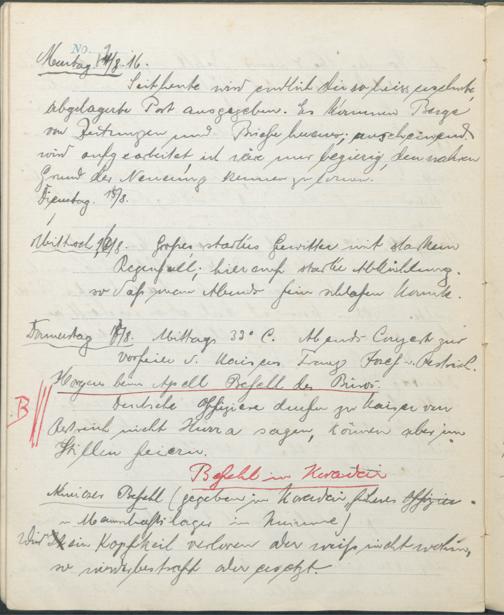 No.
Montag 14/8.16.
Seit heute wird endlich die so heiss ersehnte
abgelagerte Post ausgegeben. Es kommen Berge
von Zeitungen und Briefe heraus; anscheinend
wird aufgearbeitet ich wäre nur begierig, den wahren
Grund der Neuerung kennen zu lernen.
Dienstag. 15/8.
Mittwoch, 16/8. Großes starkes Gewitter mit starkem
Regenfall; hierauf starke Abkühlung.
so daß man Abends fein schlafen konnte.
Donnerstag 17/8. Mittags 33° C. Abends Conzert zur
Vorfeier v. Kaisers Franz Josef v. Östreich.
Morgens beim Apell Befehl des Büros.
B
Deutsche Offiziere durfen zu Kaiser von
Östreich nicht Hurra sagen, können aber im
Stillen feiern.
Befehl in
Befehl (gegeben in früheres Offizier -
u. Mannschaftslager in
Wird ein Kopfkeil verloren oder weiß nicht wohin,
so wieder bestraft oder ersetzt.